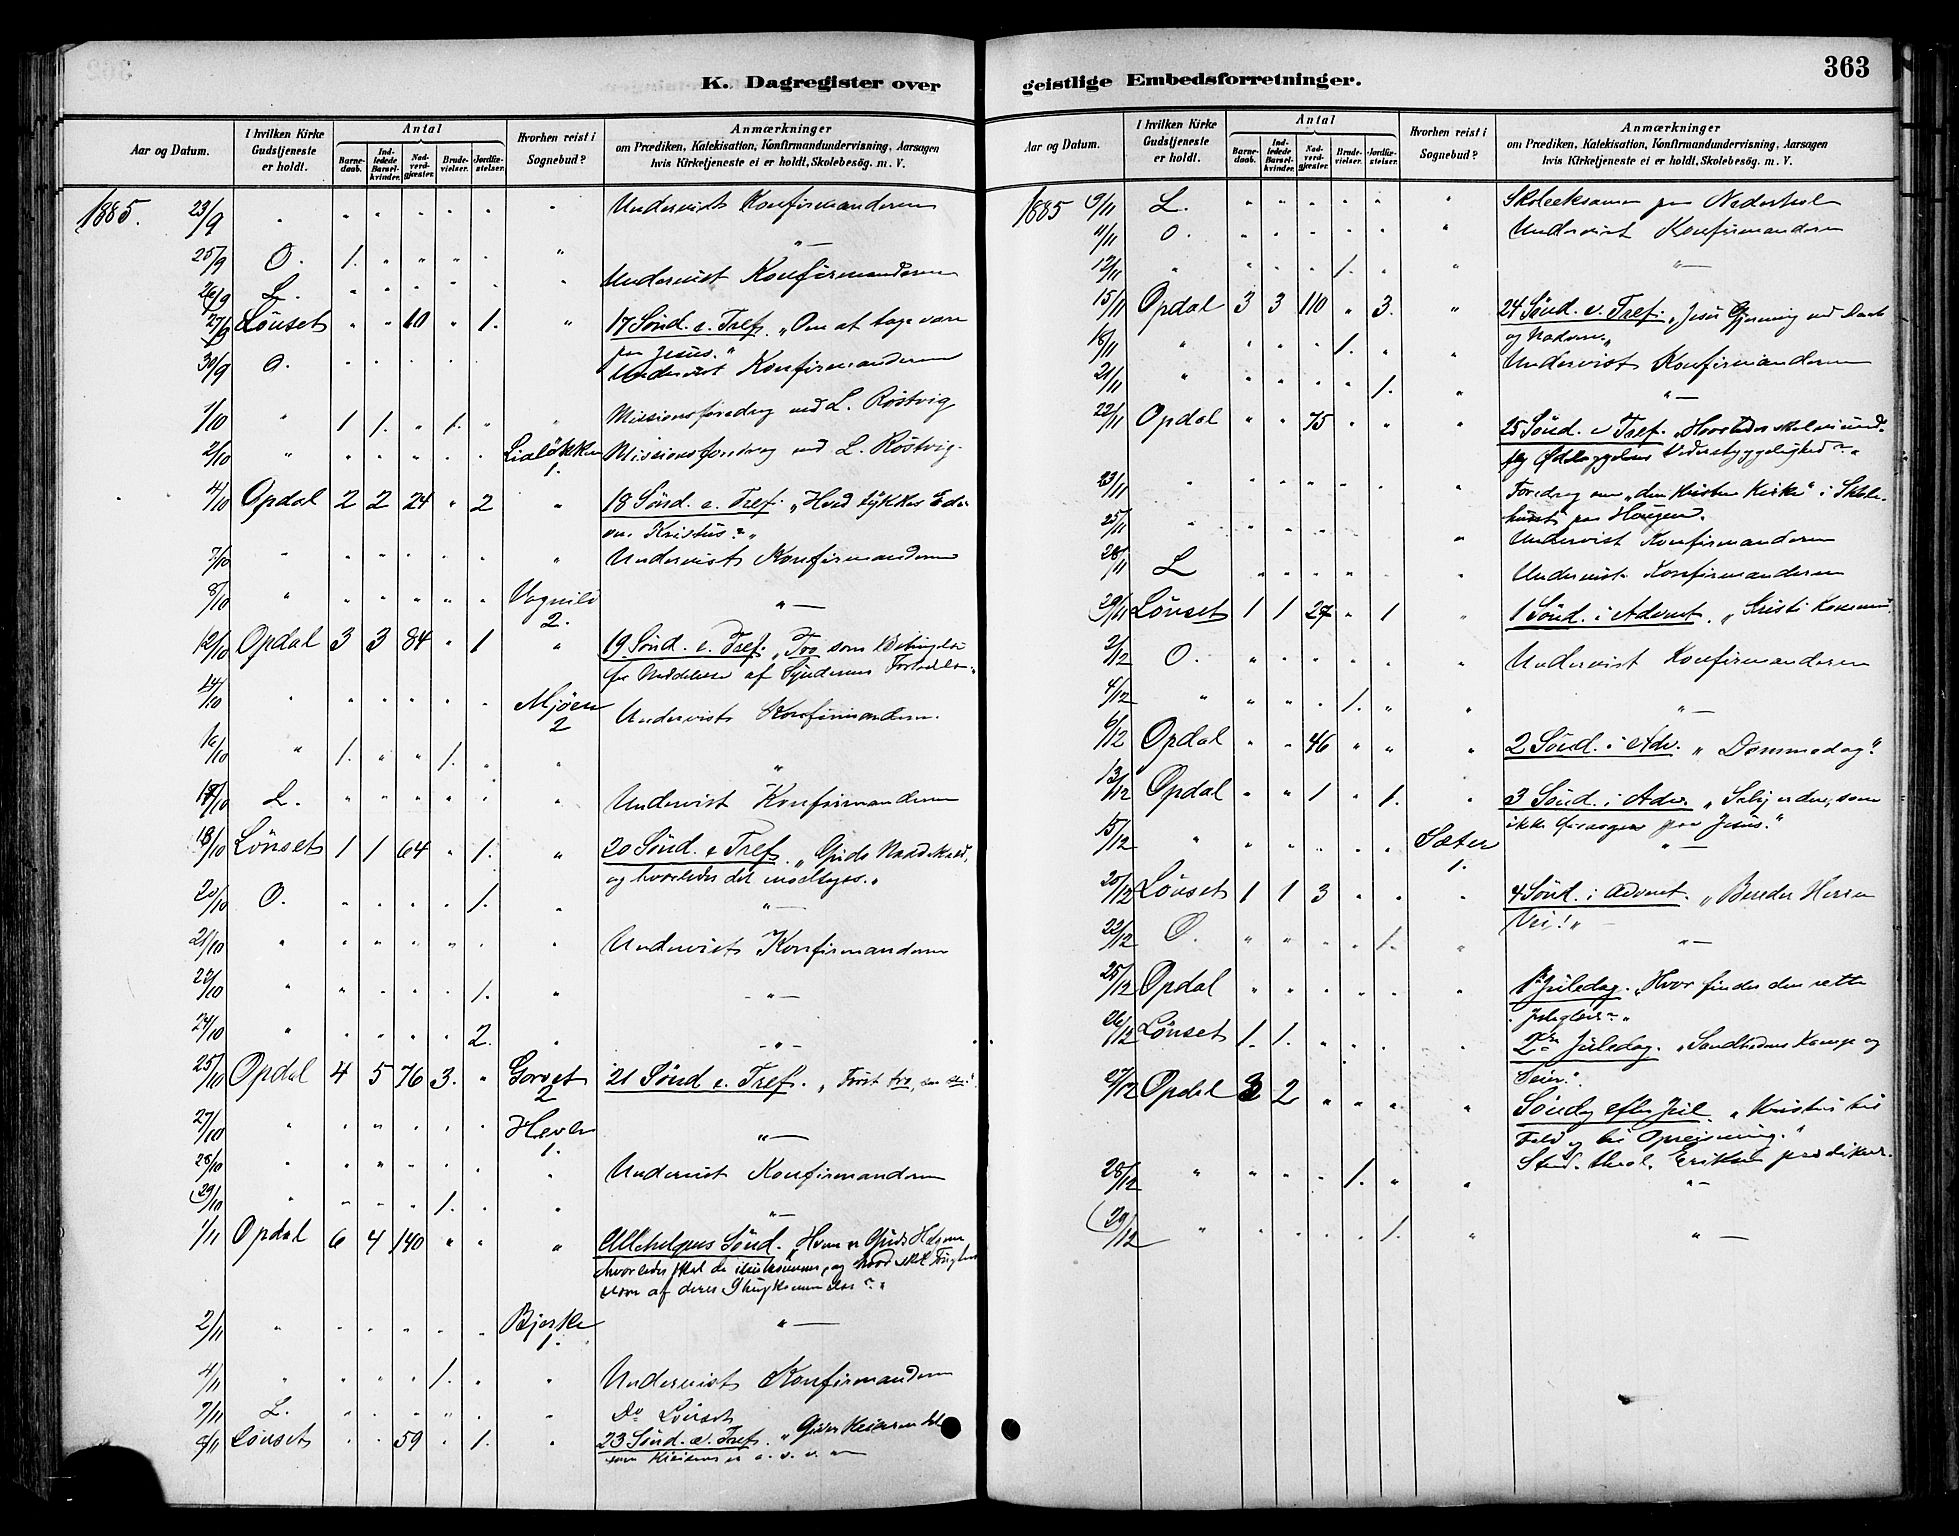 K. Dagregister over
geistlige Embedsforretninger.
363
Aar og Datum.
I hvilken Kirke Gudstjeneste er holdt.
Antal
Barnedaab.
Indledede Barselkvinder.
Nadverdgjæster.
Brudevielser.
Jordfæstelser.
Hvorhen reist i Sognebud?
Anmærkninger
om Prædiken, Katekisation, Konfirmandundervisning, Aarsagen
hvis Kirketjeneste ei er holdt, Skolebesøg. m. V.
1885. 23/9 " " " " " " " Undervist Konfirmanderne
25/9 O. 1. " " " " " "
26/9 L. " " " " " " Undervist Konfirmanderne
27/9 Lönset " " 60 " 1. " 17 Sönd. e. Tref. "Om at tage vare
paa Jesus."
30/9 O. " " " " " Undervist Konfirmanderne
1/10 " 1 1. " 1. " " Missionsforedrag ved L. Röstvig
2/10 " " " " " " Lialökken 1. Missionsforedrag ved L. Röstvig.
4/10 Opdal 2 2 24 " 2 " 18 Sönd. e. Tref. "Hvad tykkes Eder
om Kristus?"
7/10 " " " " " " " Undervist Konfirmanderne
8/10 " " " " " " Vognild 2. "
12/10 Opdal 3 3 84 " 1 " 19 Sönd. e. Tref. "Tro som Betingelse
for Meddelelse af Syndernes Forladelse."
14/10 " " " " " " Mjöen 2 Undervist Konfirmanderne.
16/10 " 1. " " 1. " " "
17/10 L. " " " " " " Undervist Konfirmanderne
18/10 Lönset 1 1 64 " 1. " 20 Sönd. e Tref. "Guds Naadekald,
og hvorledes det modtages."
20/10 O. " " " " 1. " "
21/10 " " " " " " " Undervist Konfirmanderne
23/10 " " " " " 1. " "
24/10 " " " " " 2. " "
25/10 Opdal 4 5 76 3. " Gorset 2 21 Sönd e. Tref. "Först tro,
27/10 " " " " " " Hevle 1. "
28/10 " " " " " " " Undervist Konfirmanderne
29/10 " " " " 1. " " "
1/11 Opdal 6 4 140 " " " Allehelgens Sönd. "Hvem er Guds
hvorledes skal de
være af deres
2/11 " " " " " " Bjerke 1. "
4/11 " " " " 1. " " Undervist Konfirmanderne
7/11 L. " " " " " " Do Lönset
8/11 Lönset " " 59 " 1. " 23 Sönd. e. Tref. "Giver Keiseren det
som Keiserens er o. s. v.
Aar og Datum.
I hvilken Kirke Gudstjeneste er holdt.
Antal
Barnedaab.
Indledede Barselkvinder.
Nadverdgjæster.
Brudevielser.
Jordfæstelser.
Hvorhen reist i Sognebud?
Anmærkninger
om Prædiken, Katekisation, Konfirmandundervisning, Aarsagen
hvis Kirketjeneste ei er holdt, Skolebesøg. m. V.
1885 9/11 L. " " " " " " Skoleeksamen paa
11/11 O. " " " " " " Undervist Konfirmanderne
12/11 " " " " 1. " " "
15/11 Opdal 3 3 110 " 3. " 24 Sönd. e. Tref. "Jesu Gjerning ved
18/11 " " " " 1. " " Undervist Konfirmanderne
21/11 " " " " " 1. " "
22/11 Opdal " " 75 " " " 25 Sönd. e Tref. "Hvorledes skal vi und-
fly Ödelæggelsens Vederstyggelighed?"
23/11 " " " " " " " Foredrag om "den kristne Kirke" i Skole-
huset paa Haugen.
25/11 " " " " " " " Undervist Konfirmanderne
28/11 L " " " " " " Undervist Konfirmanderne
29/11 Lönset 1 1 27 " 1 " 1 Sönd. i Advent. "Kristi Komme".
2/12 O. " " " " " " Undervist Konfirmanderne
4/12 " " " " 1. " " "
6/12 Opdal " " 46 " " " 2 Sönd. i Adv. "Dommedag".
13/12 Opdal " " 1 " 1. " 3 Sönd. i Adv. "Salig er den, som
ikke forarges paa Jesus."
15/12 " " " " " " Sæter 1. "
20/12 Lönset 1 1 3 " " " 4 Sönd. i Advent. "Bereder Herren
Vei!"
22/12 O. " " " " 1. " "
25/12 Opdal " " " " " " 1ste Juledag. "Hvor findes den rette
Juleglæde?"
26/12 Lönset 1. 1. " " " " 2den Juledag. "Sandhedens Kamp og
Seier."
27/12 Opdal 3 2 " " " " Söndag efter Jul. "Kristus til
Fald og til Opreisning."
Stud. theol. Eriksen prædiker.
28/12 " " " " 1. " " "
29/12 " " " " " 1. " "